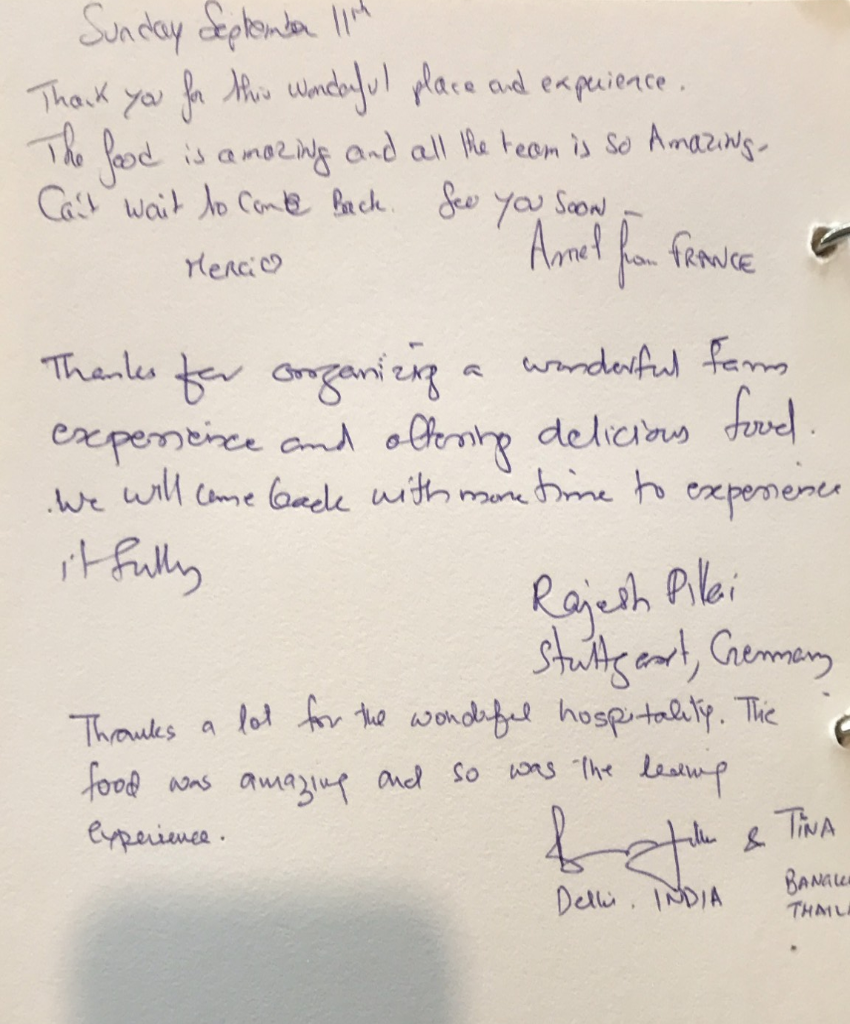 Sunday September 11th
Thank you for this wonderful place and experience.
The food is amazing and all the team is so Amazing.
Can't wait to come Back. See you soon
Merci♡
Amel from FRANCE
Thanks for organizing a wonderful farm
experience and offering delicious food.
We will come back with more time to experience
it fully
Rajesh Pillai
Stuttgart, Germany
Thanks a lot for the wonderful hospitality. The
food was amazing and so was the learning
experience.
& TINA
Delhi. INDIA
THAIL